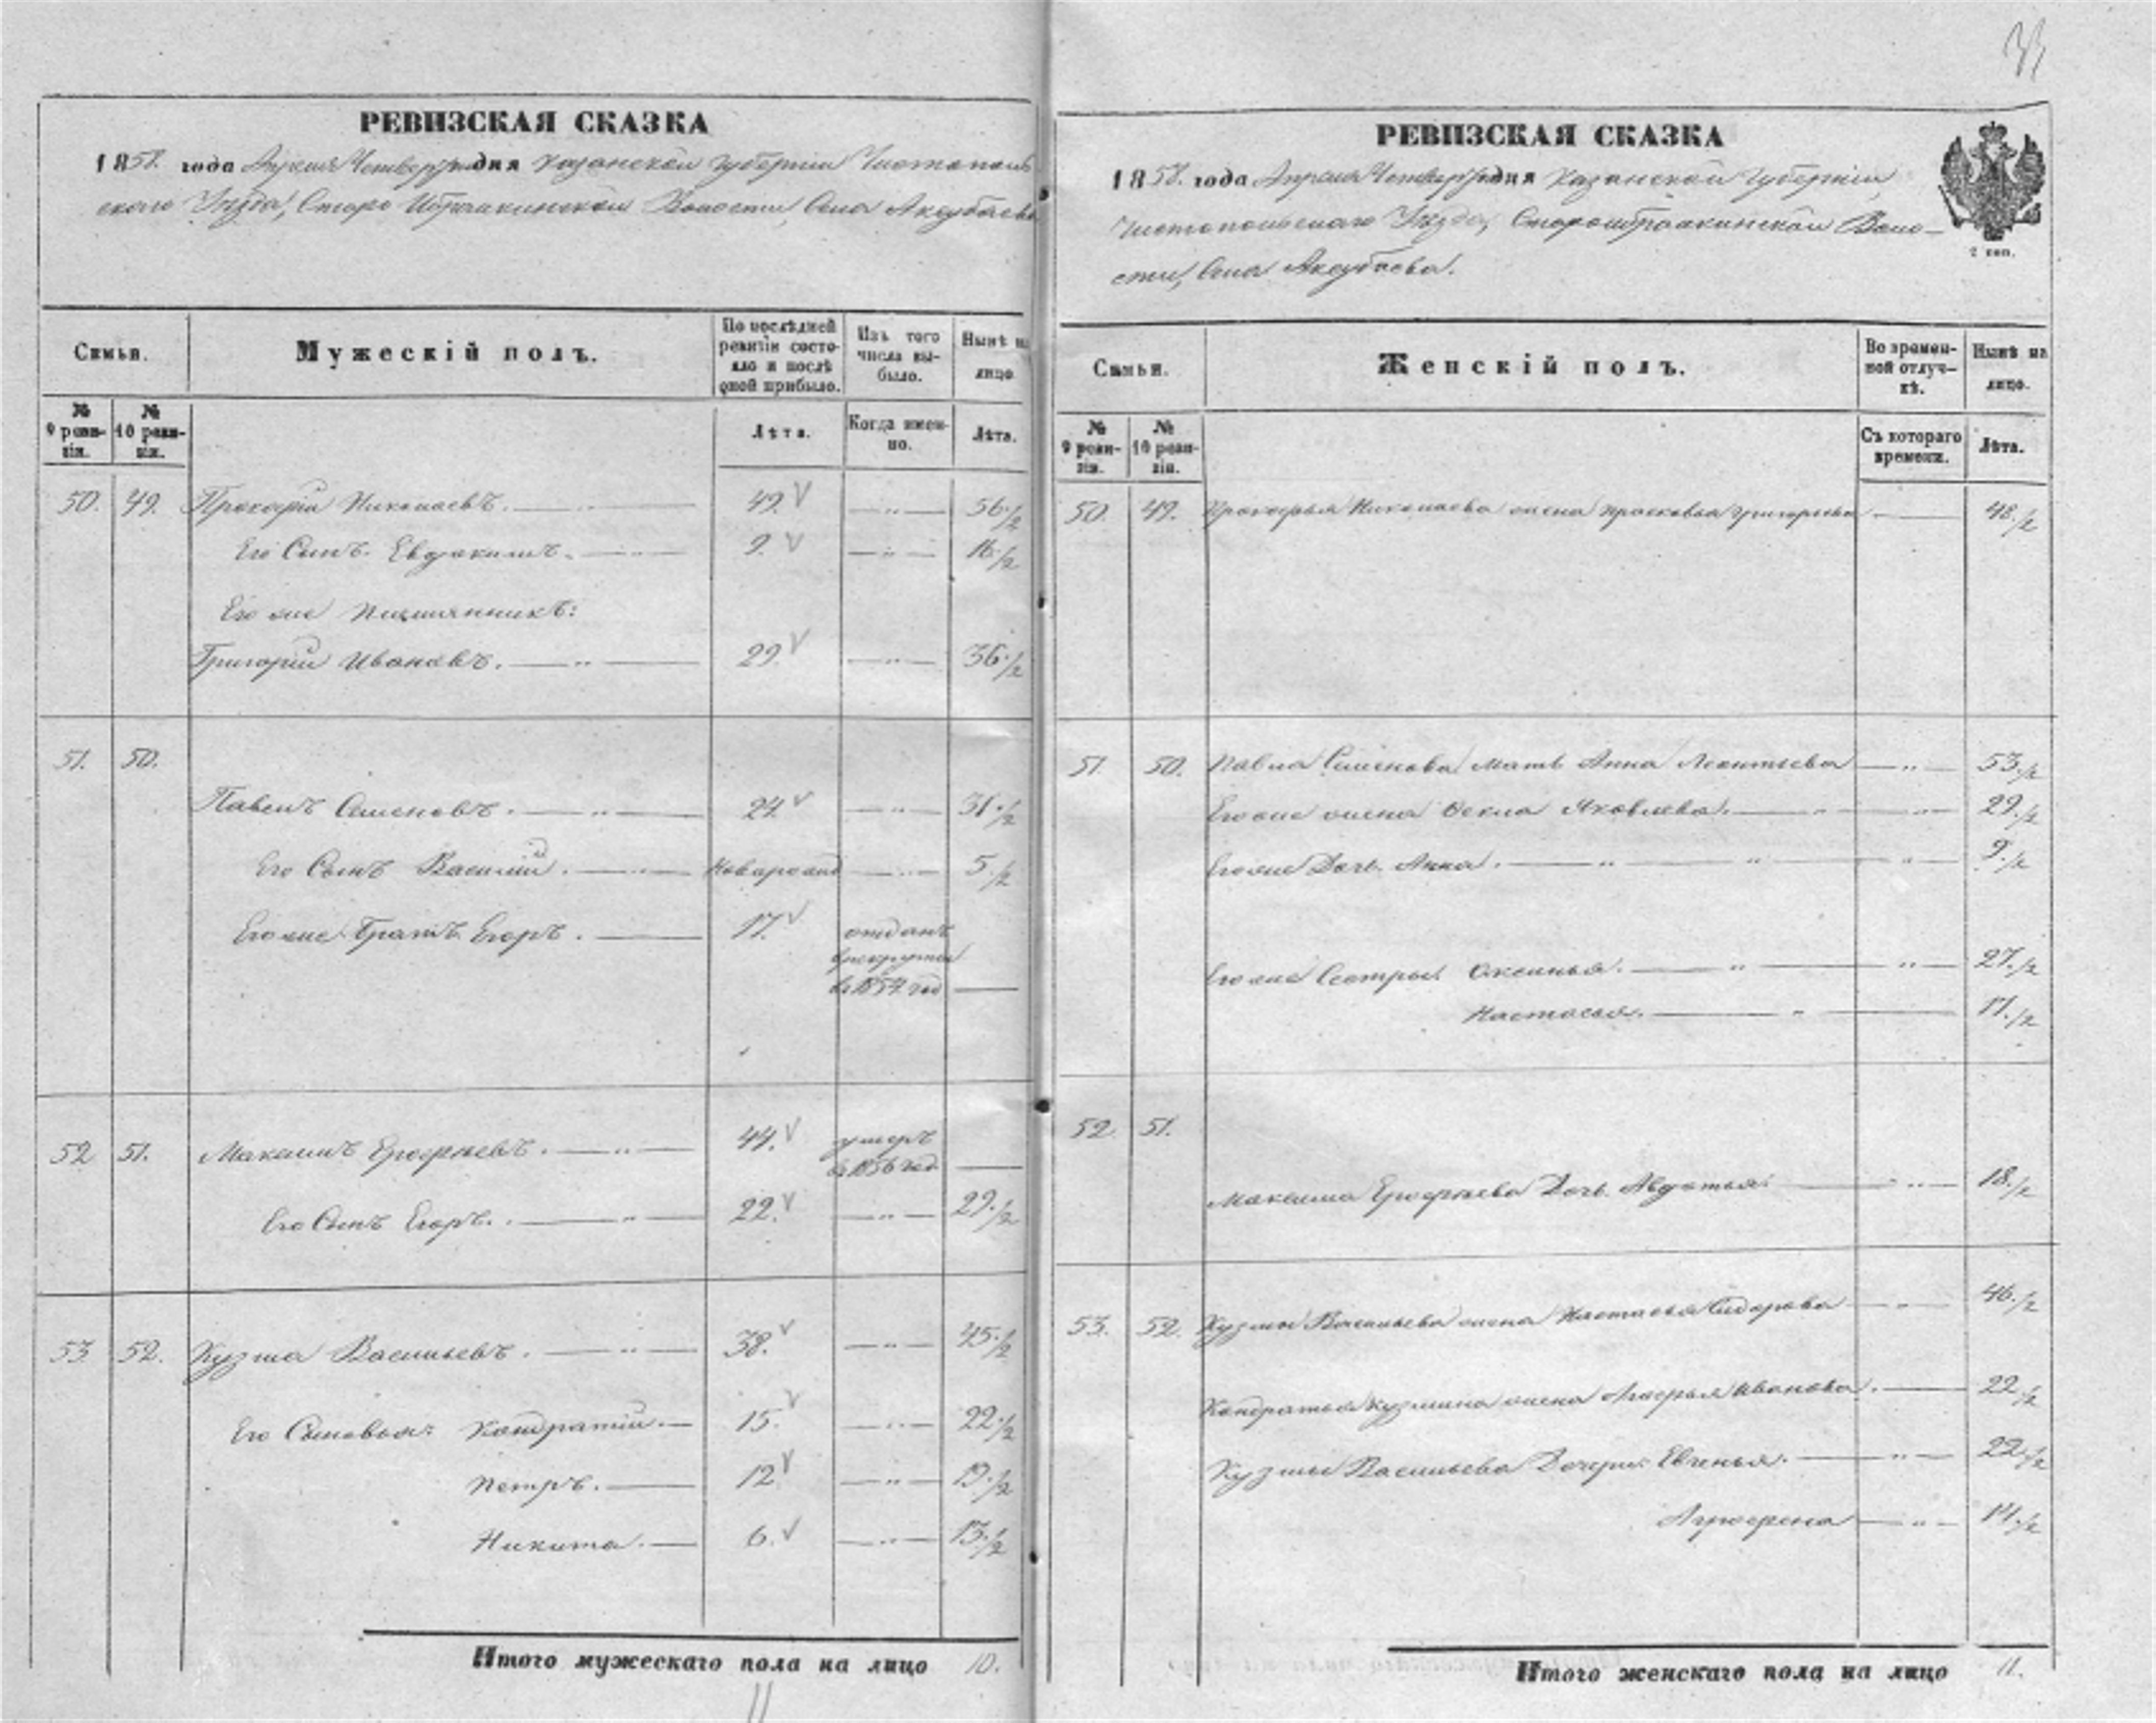 РЕВИЗСКАЯ СКАЗКА
1858. года Апреля Четвертого дня Казанской Губернiи Чистополь
скаго Уезда, Старо Ибраикинской Волости, Села Аксубаева
Семьи.
Мужескiй полъ.
По послѣдней ревизiи состояло и послѣ оной прибыло.
Изъ того числа выбыло.
Нынѣ на лицо
№ 9 ревизiи.
№ 10 ревизiи.
Лѣта.
Когда именно.
Лѣта.
50. 49. Прокофiй Николаевъ. 49. 56 1/2
Его Сынъ Евдокимъ. 9. 16 1/2
Его же племянникъ:
Григорiй Ивановъ. 29 36 1/2
51. 50.
Павелъ Семеновъ. 24 31 1/2
Его Сынъ Василiй. новорожд 5 1/2
Его же Братъ Егоръ. 17. отданъ
в рекруты
в 1854 год
52 51. Максимъ Ерофѣевъ. 44. умеръ
в 1856 год
Его Сынъ Егоръ. 22. 29 1/2
53 52. Кузма Васильевъ. 38. 45 1/2
Его Сыновья: Кондратiй. 15. 22 1/2
Петръ. 12 19 1/2
Никита. 6. 13 1/2
Итого мужескаго пола на лицо 10.
11
РЕВИЗСКАЯ СКАЗКА
1858. года Апреля Четвертого дня Казанской Губернiи,
Чистопольскаго Уезда, Староибраикинской Воло-
сти, Села Аксубаева.
2 коп.
Семьи.
Женскiй полъ.
Во времен-
ной отлуч-
кѣ.
Нынѣ на
лицо.
№ 9 ревизiи.
№ 10 ревизiи.
Съ котораго
времени.
Лѣта.
50. 49. Прокофья Николаева жена Прасковья Григорьева 48 1/2
51 50. Павла Семенова Мать Анна Леонтьева 53 1/2
Его же жена Фекла Яковлева. 29 1/2
Его же Дочь Анна. 9 1/2
Его же Сестры: Оксинья. 27 1/2
Настасья. 17 1/2
52 51.
Максима Ерофѣева Дочь Авдотья 18 1/2
53. 52. Кузмы Васильева жена Настасья Сидорова 46 1/2
Кондратья Кузмина жена Агафья Иванова. 22 1/2
Кузмы Васильева Дочери: Евгенья. 22 1/2
Агрофена 14 1/2
Итого женскаго пола на лицо 11.